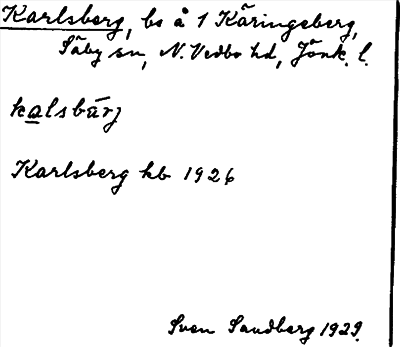 Karlsberg, bs å 1 Käringeberg,
Säby sn, N. Vedbo hd, Jönk. l.
kalsbärj
Karlsberg hb 1926
Sven Sandberg 1929.